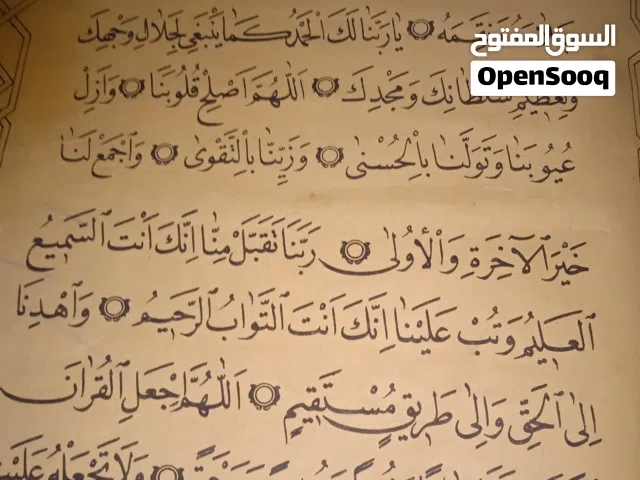 السوق المفتوح
OpenSooq
نِعَمَهُ ۝ يَا رَبَّنَا لَكَ الْحَمْدُ كَمَا يَنْبَغِي لِجَلَالِ وَجْهِكَ
وَعَظِيمِ سُلْطَانِكَ وَمَجْدِكَ ۝ اَللّٰهُمَّ اَصْلِحْ قُلُوبَنَا ۝ وَاَزِلْ
عُيُوبَنَا وَتَوَلَّنَا بِالْحُسْنٰى ۝ وَزَيِّنَّا بِالتَّقْوٰى ۝ وَاجْمَعْ لَنَا
خَيْرَ الْاٰخِرَةِ وَالْاُولٰى ۝ رَبَّنَا تَقَبَّلْ مِنَّا اِنَّكَ اَنْتَ السَّمِيعُ
الْعَلِيمُ وَتُبْ عَلَيْنَا اِنَّكَ اَنْتَ التَّوَّابُ الرَّحِيمُ ۝ وَاهْدِنَا
اِلَى الْحَقِّ وَاِلٰى طَرِيقٍ مُسْتَقِيمٍ ۝ اَللّٰهُمَّ اجْعَلِ الْقُرْاٰنَ
وَلَا تَجْعَلْهُ عَلَيْنَا